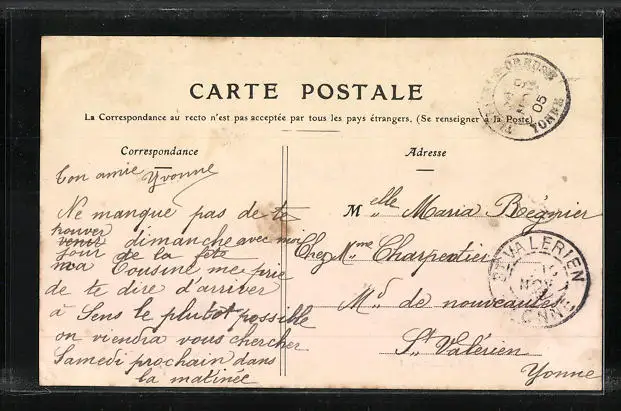 CARTE POSTALE
La Correspondance au recto n'est pas acceptée par tous les pays étrangers. (Se renseigner à la Poste)
Correspondance
Ton amie Yvonne
Ne manque pas de te
trouver
venir dimanche avec moi
jour de la fête
ma Cousine me prie
de te dire d'arriver
à Sens le plutot possible
on viendra vous chercher
Samedi prochain dans
la matinée
Adresse
Melle Maria Régnier
Chez Mme Charpentier
Mde de nouveautés
St Valérien
Yonne
05
YONNE
ST VALERIEN
NOV
YONNE